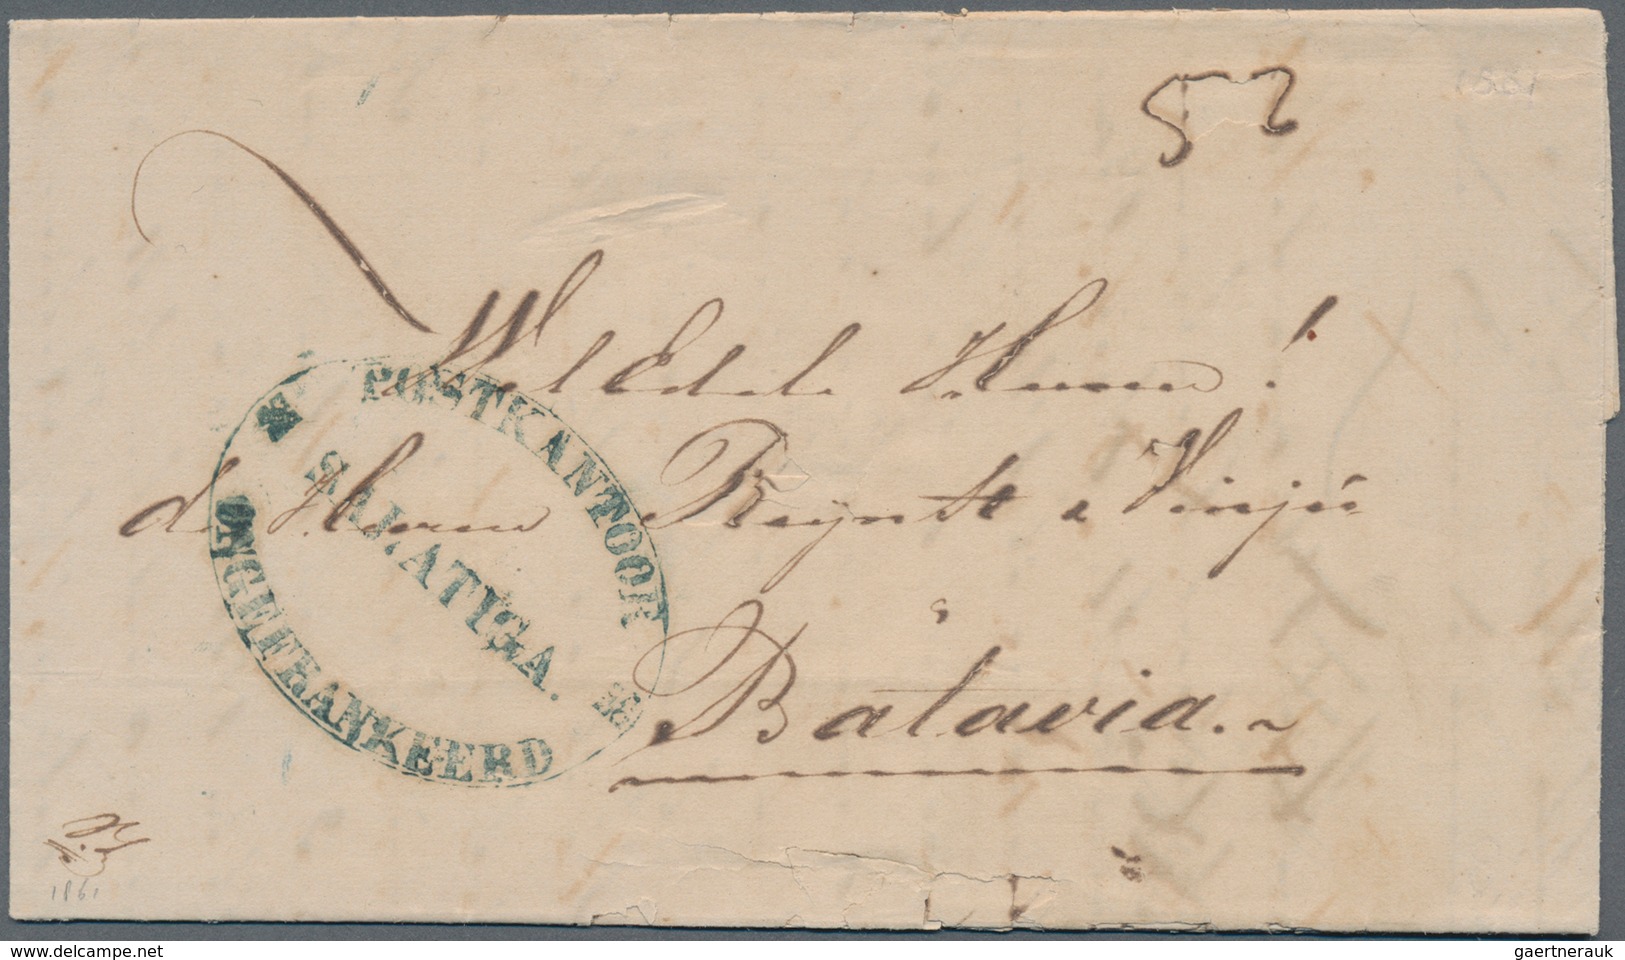 52
1861
Wel Edele Heeren!
de Heeren Reynst & Vinju
Batavia.
POSTKANTOOR
SALATIGA.
ONGEFRANKEERD
1861
delcampe.net
gaertnerauk